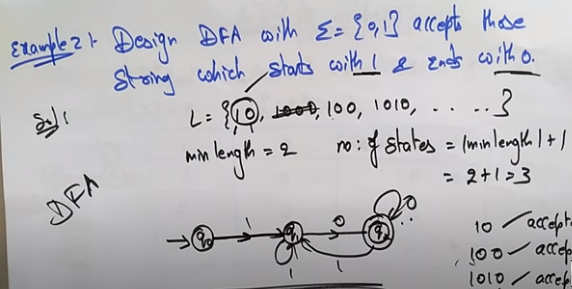 Example 2 :- Design DFA with Σ = {0,1} accepts those
string which starts with 1 & ends with 0.
Sol:
L = {10, 1000, 100, 1010, . . . . .}
min length = 2 no: of states = |min length| + 1
= 2+1=3
DFA
q0 1 q1 0 q2 0
1 1
10 accept
100 accep
1010 accep